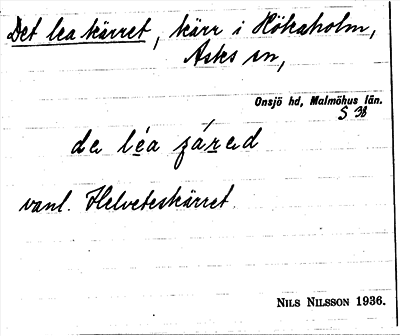 Det lea kärret, kärr i Hökaholm,
Asks sn,
Onsjö hd, Malmöhus län.
S 38
de léa
vanl. Helveteskärret.
NILS NILSSON 1936.